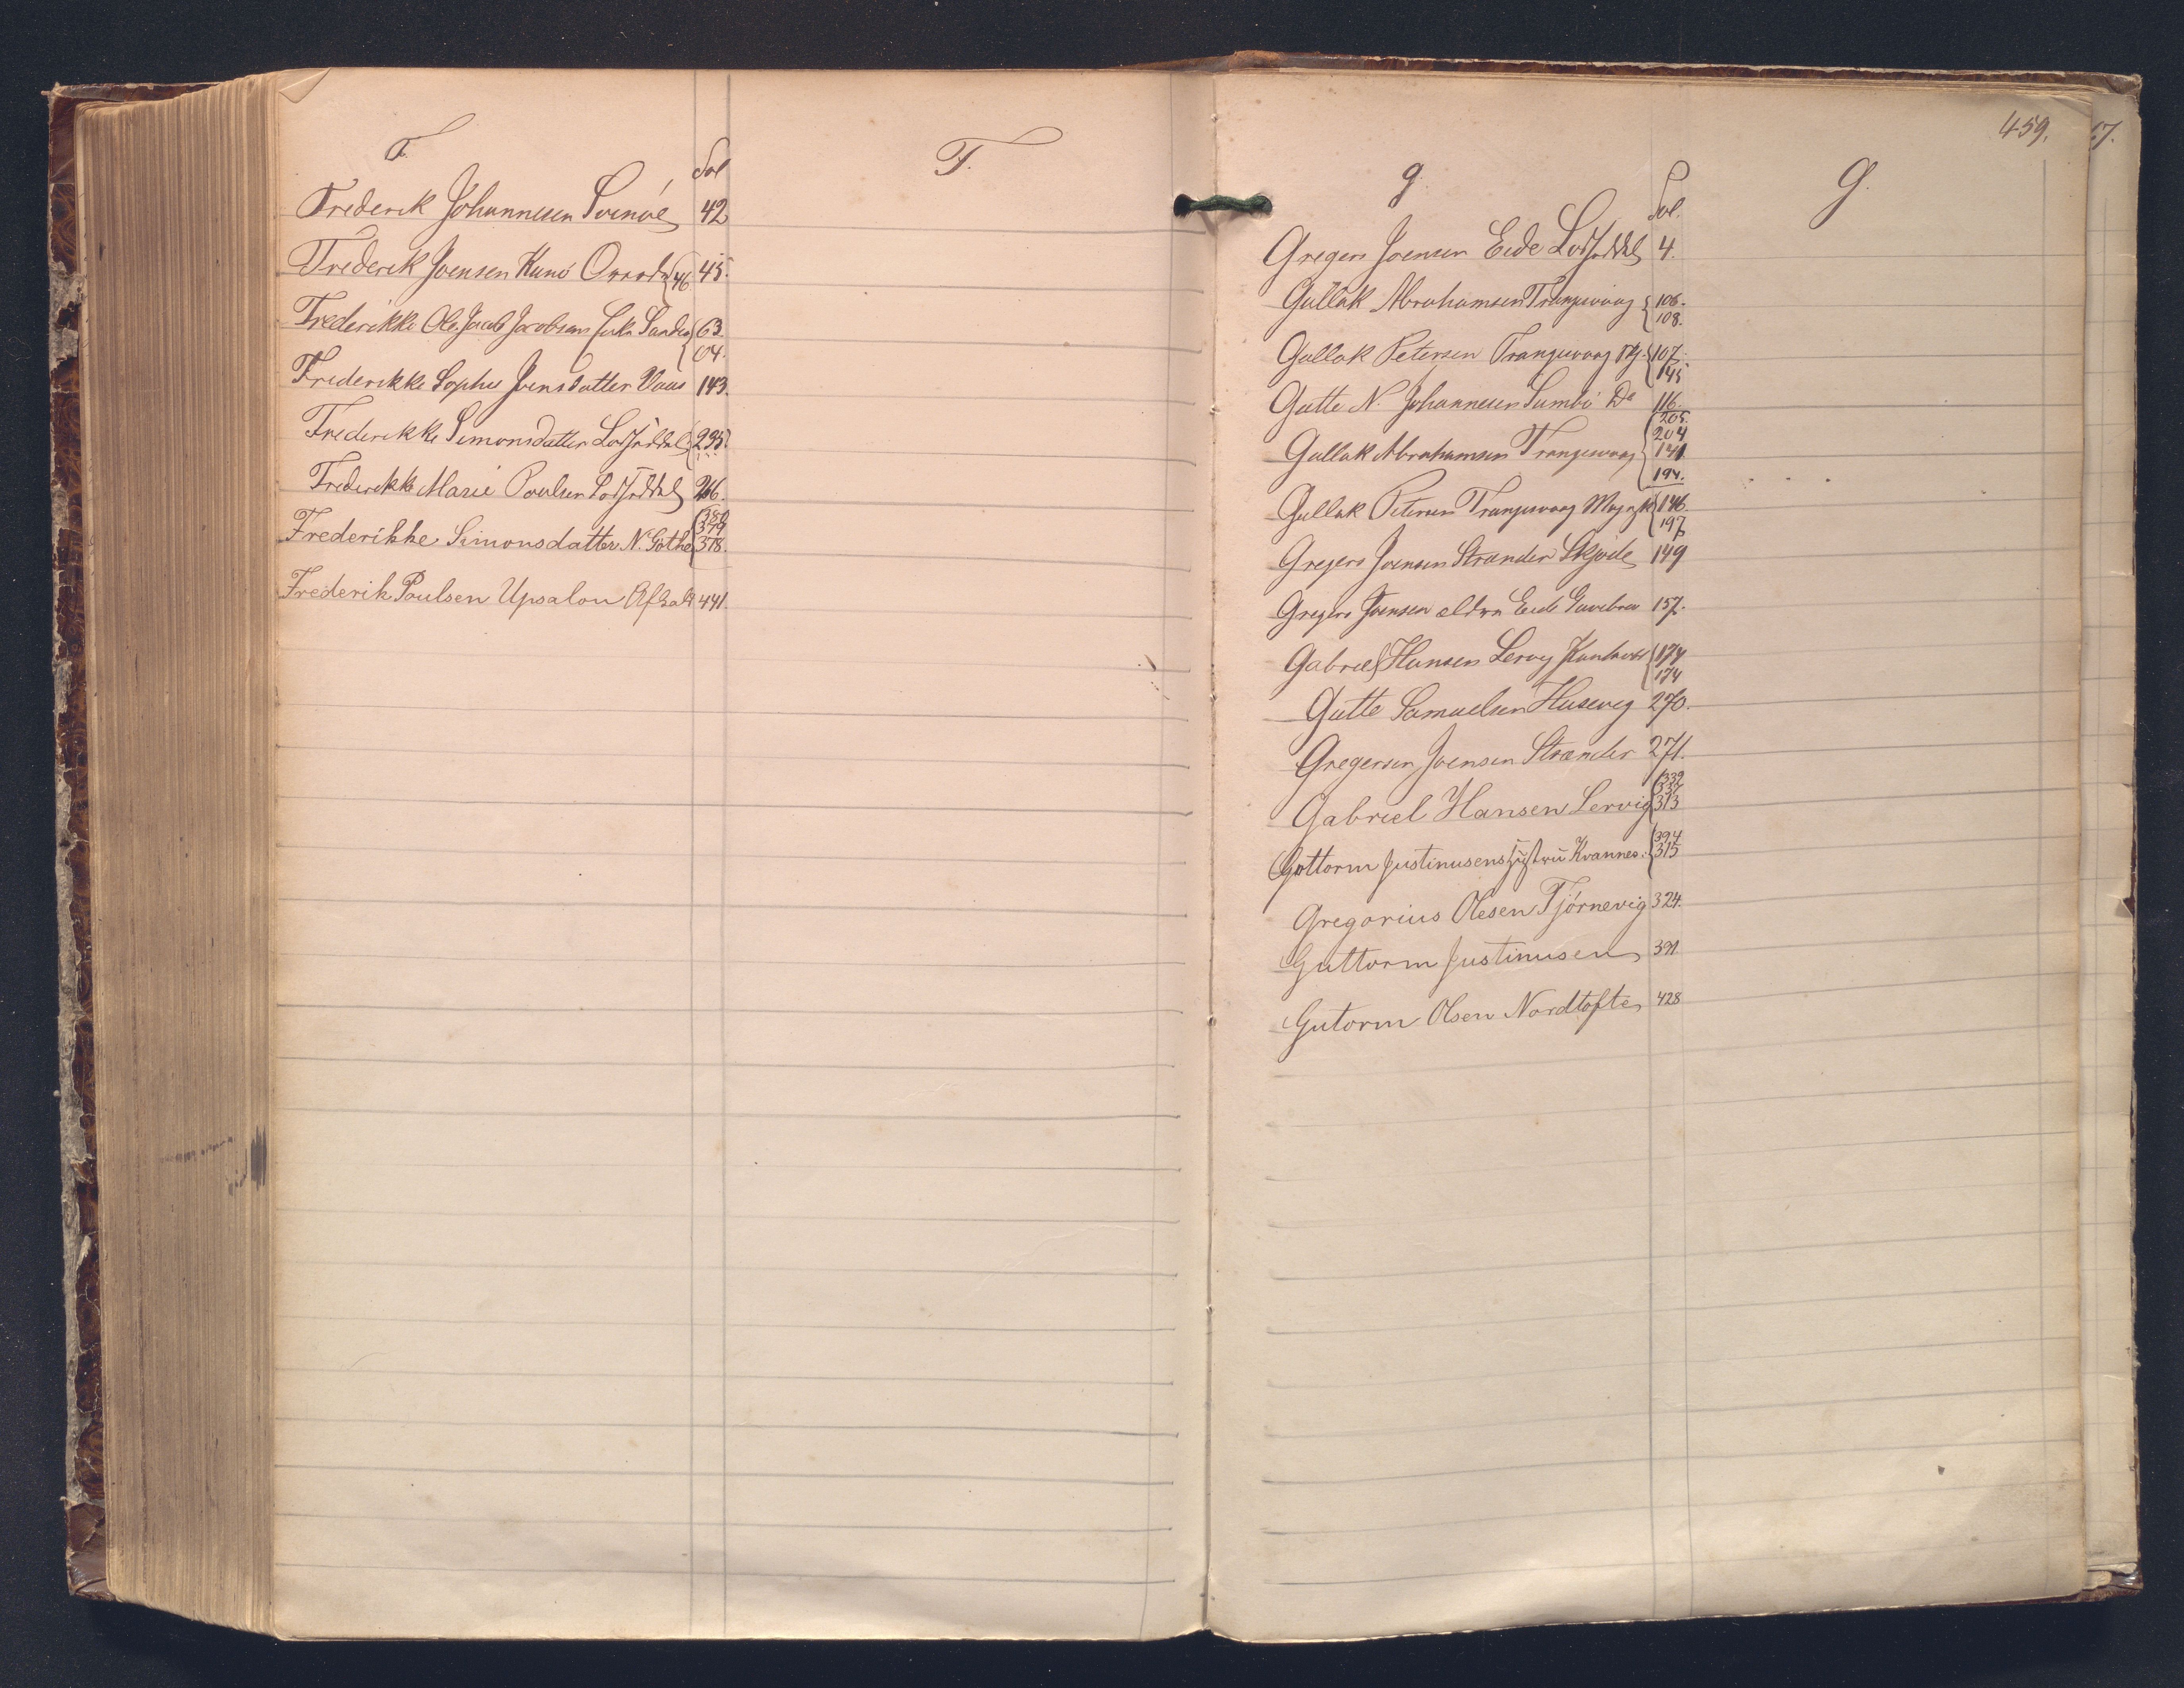 F.
Fol
F.
Frederik Johannesen Svinöe 42
Frederik Joensen Kunö 46 45.
Frederikke Ole Jacob Jacobsens Enke Sandø 63.
64.
Frederikke Sophie Joensdatter Vaag 143.
Frederikke Simonsdatter 235.
Frederikke Marie Poulsen 266.
380
379
Frederikke Simonsdatter N. Gøthe 378.
Frederik Poulsen Upsalon Afhold 441
459.
17.
G.
Fol.
G.
Gregers Joensen Eide 4.
Gullak Abrahamsen Trangisvaag 106.
108.
Gullak Petersen Trangisvaag 107.
145
Gutte N. Johannesen Sumbö Do 116.
205.
204
Gullak Abrahamsen Trangisvaag 141
194.
Gullak Petersen Trangisvaag 146
197
Gregers Joensen Strander Skjode 149
Gregers Joensen ældre Eide 157.
Gabriel Hansen Lervig 174
174
Gutte Samuelsen Husevig 270.
Gregersen Joensen Strander 271.
339
337
Gabriel Hansen Lervig 313
394
Guttorm Justinusens Hustru Kvannes. 315
Gregorius Olesen Tjörnevig 324.
Guttorm Justinusen 391
Gutorm Olsen Nordtofte 428